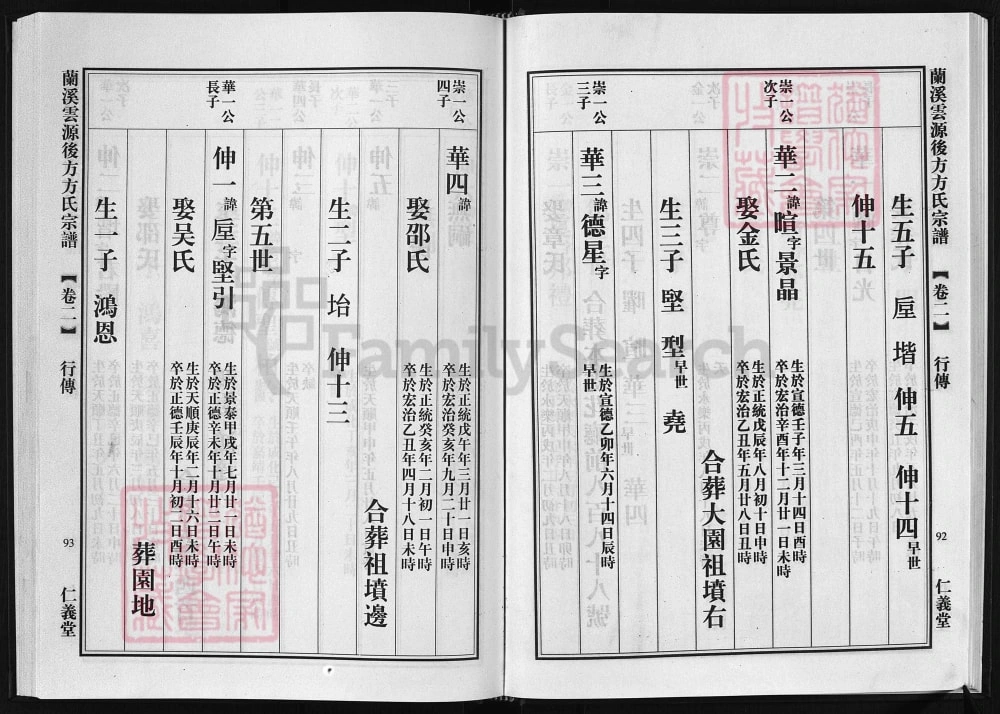 蘭溪雲源後方方氏宗譜
【卷二】
行傳
92
仁義堂
生五子 垕 堦 伸五 伸十四早世
伸十五
崇一公
次子
華二諱暄字景晶
生於宣德壬子年三月十四日酉時
卒於宏治辛酉年十二月廿一日未時
娶金氏
生於正統戊辰年八月初十日申時
卒於宏治乙丑年五月廿八日丑時
合葬大園祖墳右
生三子 堅 型早世 堯
崇一公
三子
華三諱德星字
生於宣德乙卯年六月十四日辰時
早世
崇一公
四子
華四諱
生於正統戊午年三月廿一日亥時
卒於宏治癸亥年九月二十日申時
娶邵氏
生於正統癸亥年二月初一日午時
卒於宏治乙丑年四月十八日未時
合葬祖墳邊
生二子 坮 伸十三
第五世
華一公
長子
伸一諱垕字堅引
生於景泰甲戌年七月廿一日未時
卒於正德辛未年十月廿二日午時
娶吴氏
生於天順庚辰年二月十六日未時
卒於正德壬辰年十月初二日酉時
葬園地
生一子 鴻恩
蘭溪雲源後方方氏宗譜
【卷二】
行傳
93
仁義堂
FamilySearch